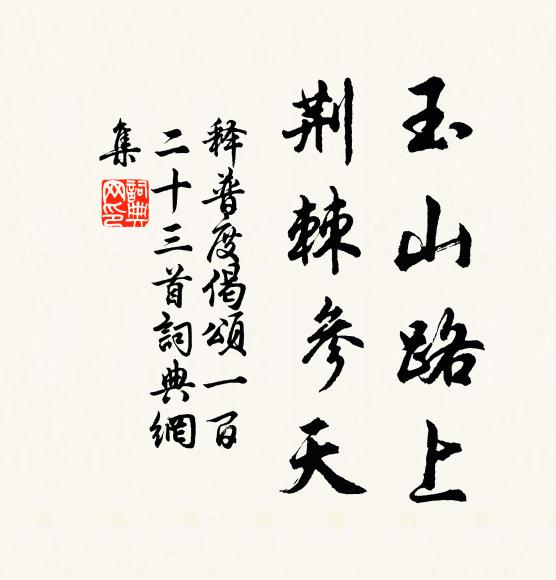 玉山路上
荆棘參天
释普度偈頌一百
二十三首詞典網
集
詞典
网印